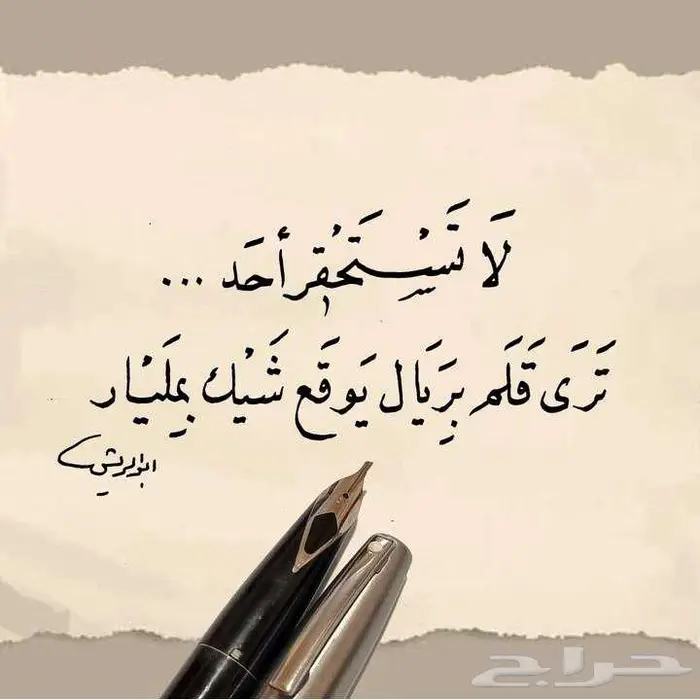 لَا تَسْتَحْقِر أحَد ...
تَرَى قَلَم بِرَيَال يَوقَع شَيْك بِمِلَيْار
ابو الريش
حراج